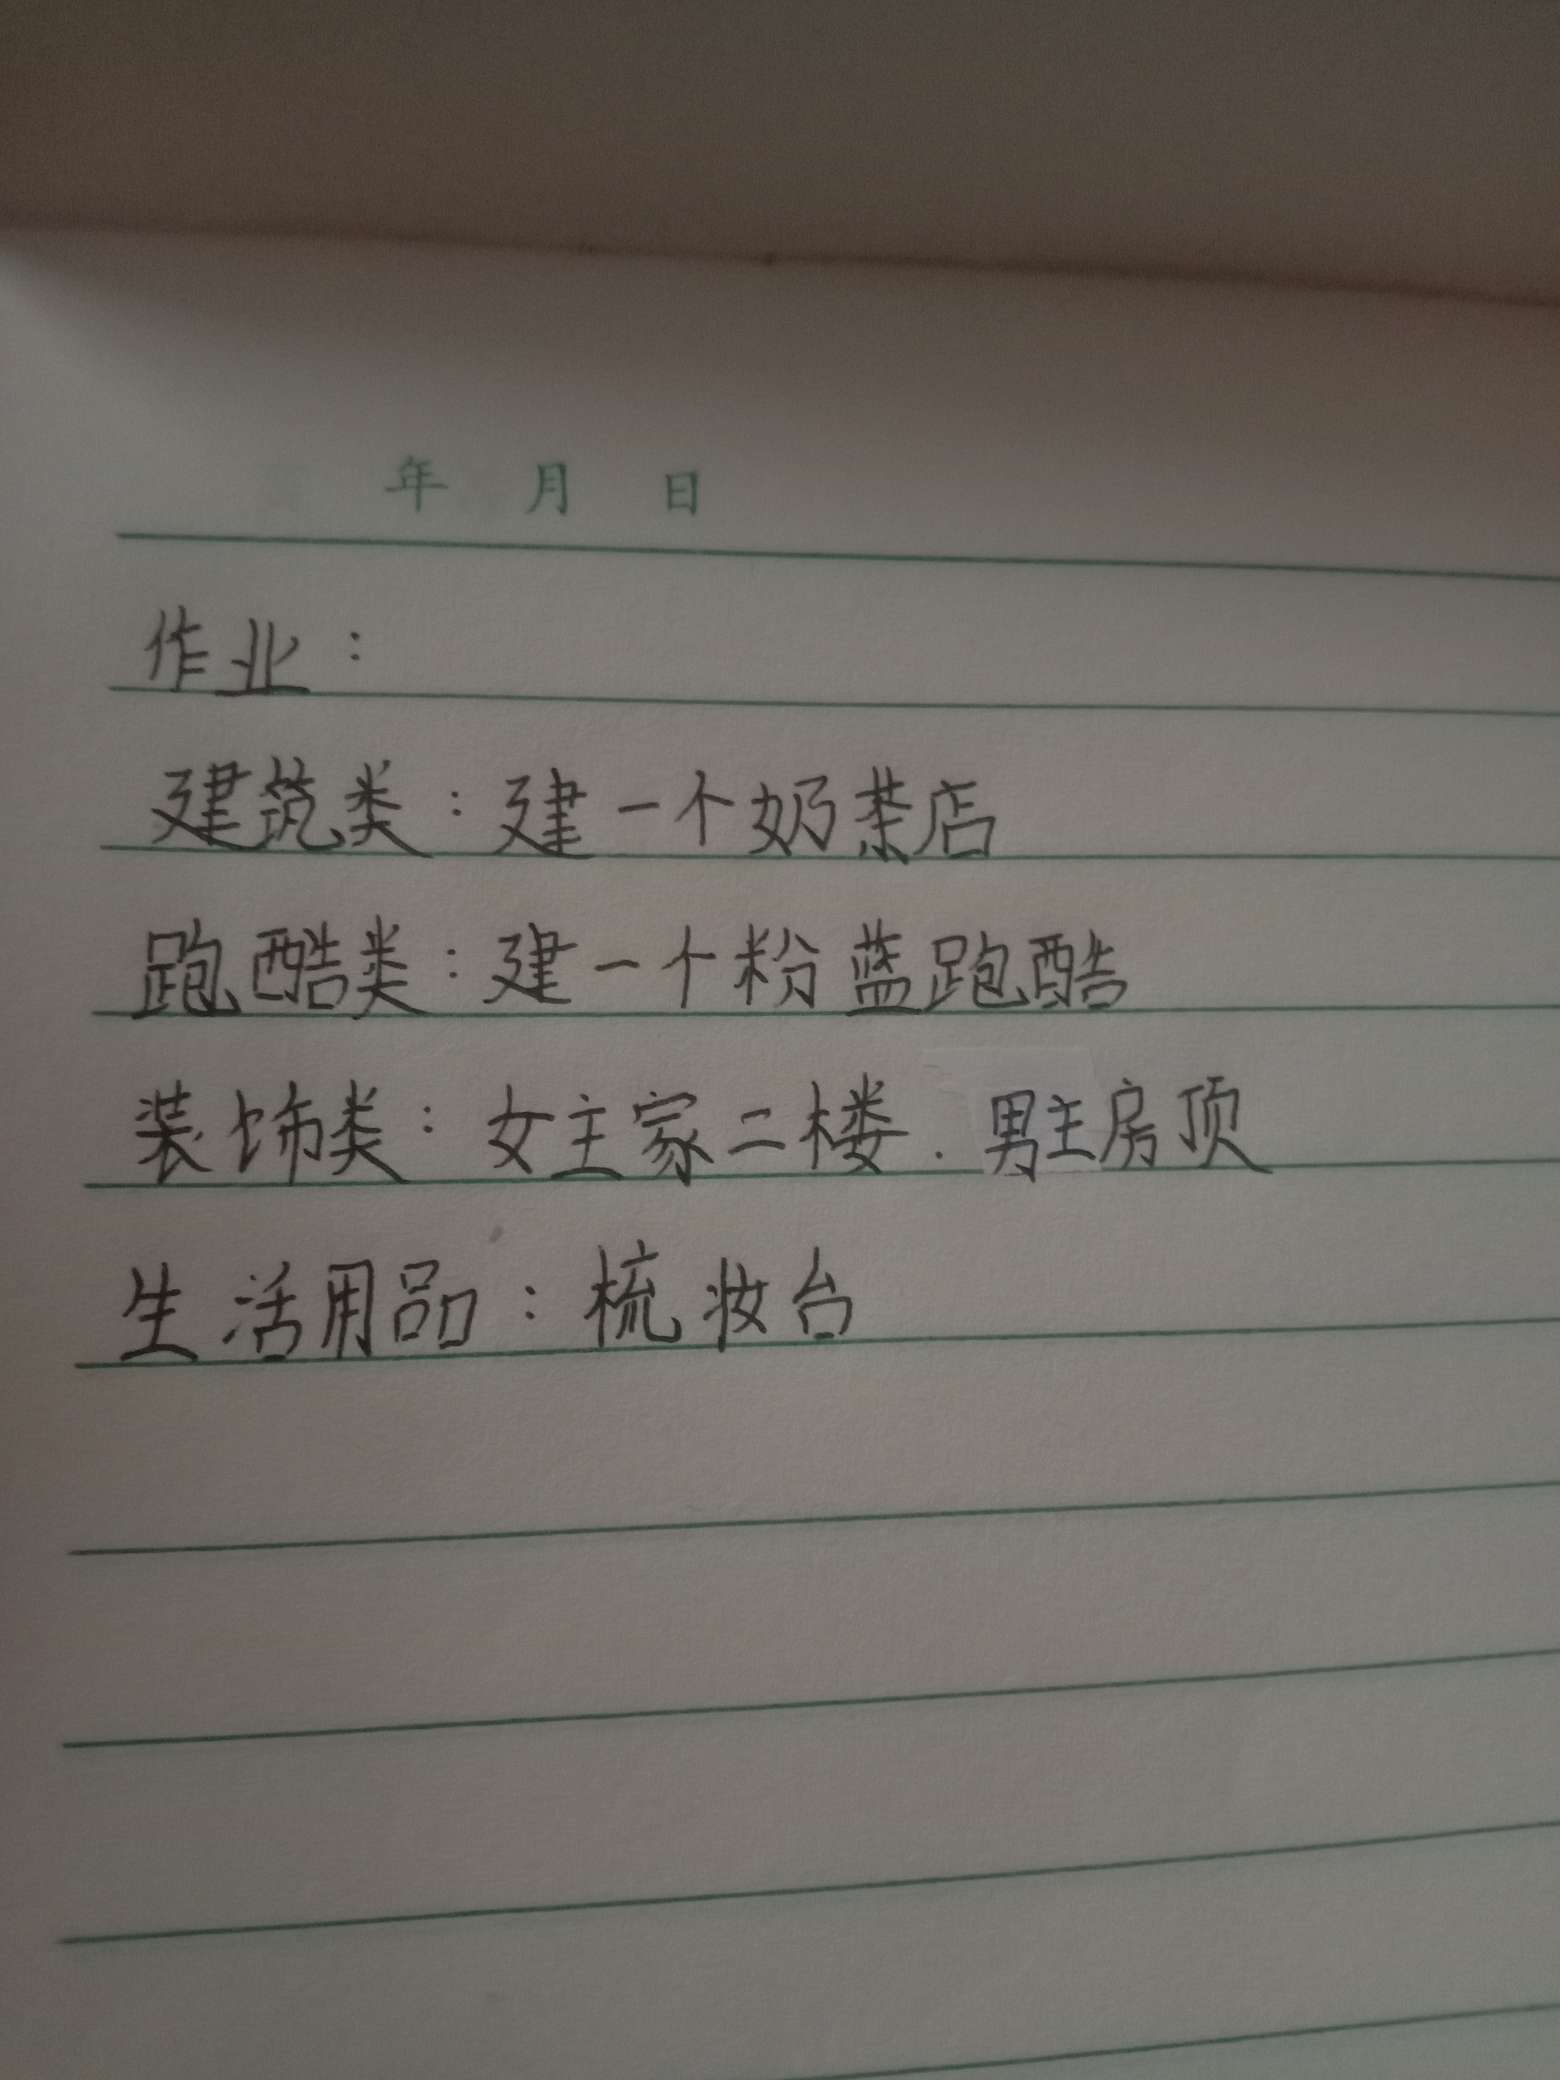 年 月 日
作业：
建筑类：建一个奶茶店
跑酷类：建一个粉蓝跑酷
装饰类：女主家二楼．男主房顶
生活用品：梳妆台